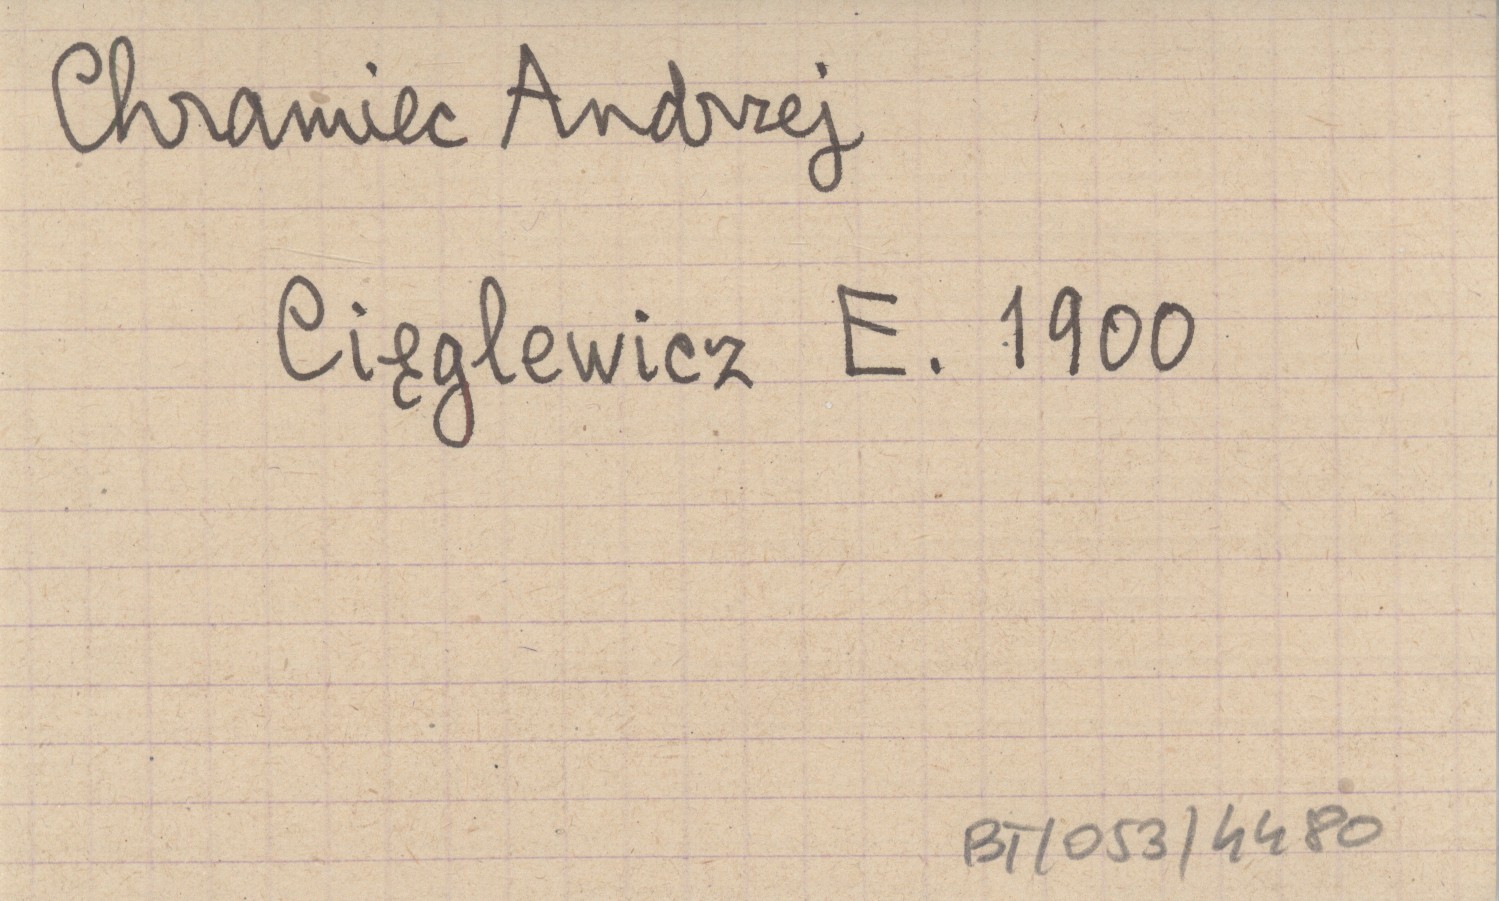 Chramiec Andrzej
Cięglewicz E. 1900
BT/053/4480